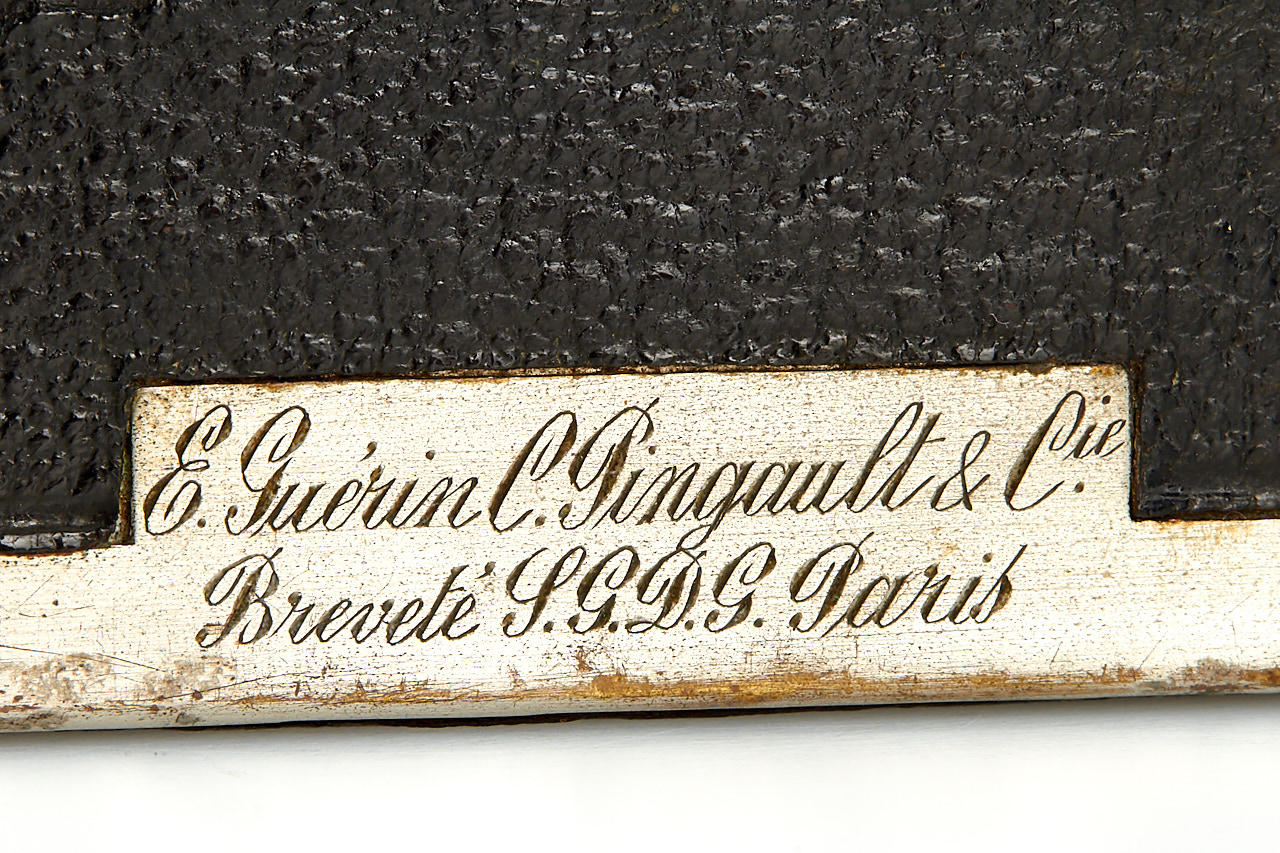 E. Guérin C. Pingault & Cie
Breveté S.G.D.G. Paris